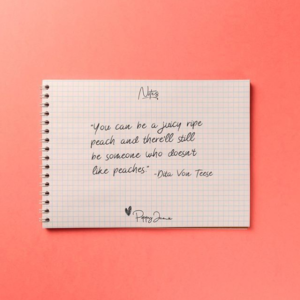 Notes
"You can be a juicy ripe
peach and there'll still
be someone who doesn't
like peaches."
-Dita Von Teese
Poppy Jane